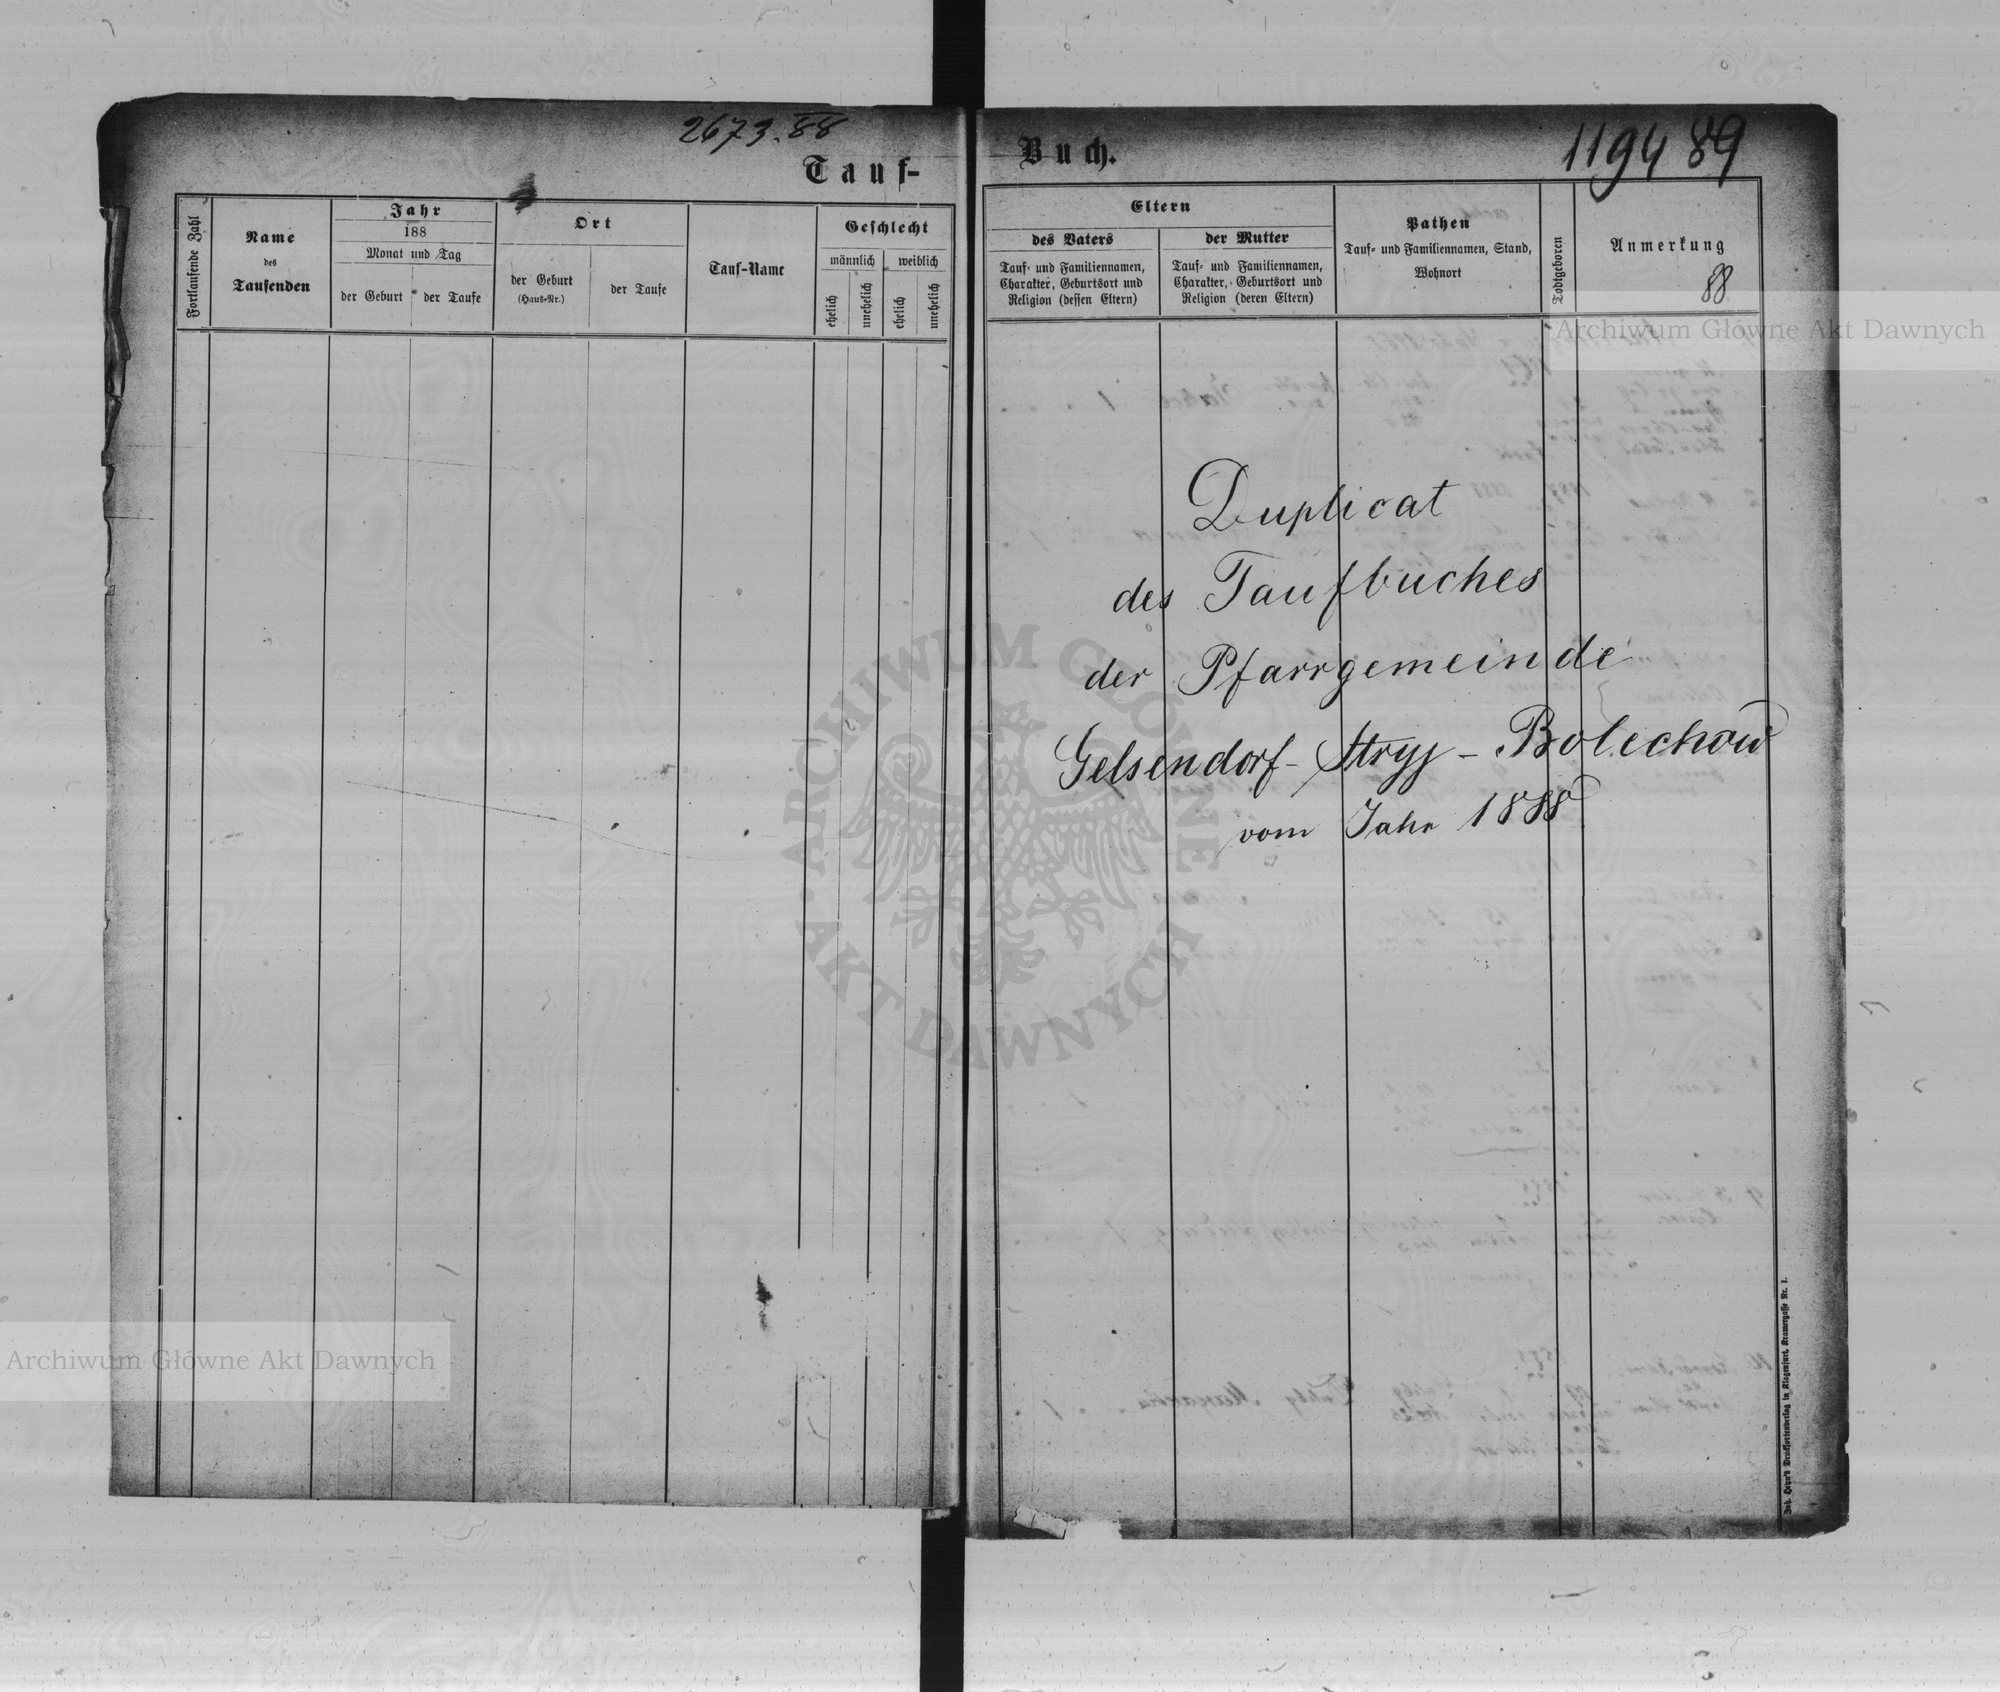 2673.88
Tauf-
Fortlaufende Zahl
Name
des
Taufenden
Jahr
188
Monat und Tag
der Geburt
der Taufe
Ort
der Geburt
(Haus-Nr.)
der Taufe
Tauf-Name
Geschlecht
männlich
weiblich
ehelich
unehelich
ehelich
unehelich
Buch.
1194 89
Eltern
des Vaters
Tauf- und Familiennamen,
Charakter, Geburtsort und
Religion (dessen Eltern)
der Mutter
Tauf- und Familiennamen,
Charakter, Geburtsort und
Religion (deren Eltern)
Pathen
Tauf- und Familiennamen, Stand,
Wohnort
Todtgeboren
Anmerkung
88
Duplicat
des Taufbuches
der Pfarrgemeinde
Gelsendorf-Stryj-Bolechow
vom Jahr 1888
Joh. Heyn's Drucksortenverlag in Klagenfurt, Kramergasse Nr. 1.
Archiwum Główne Akt Dawnych
ARCHIWUM GŁÓWNE
AKT DAWNYCH
Archiwum Główne Akt Dawnych